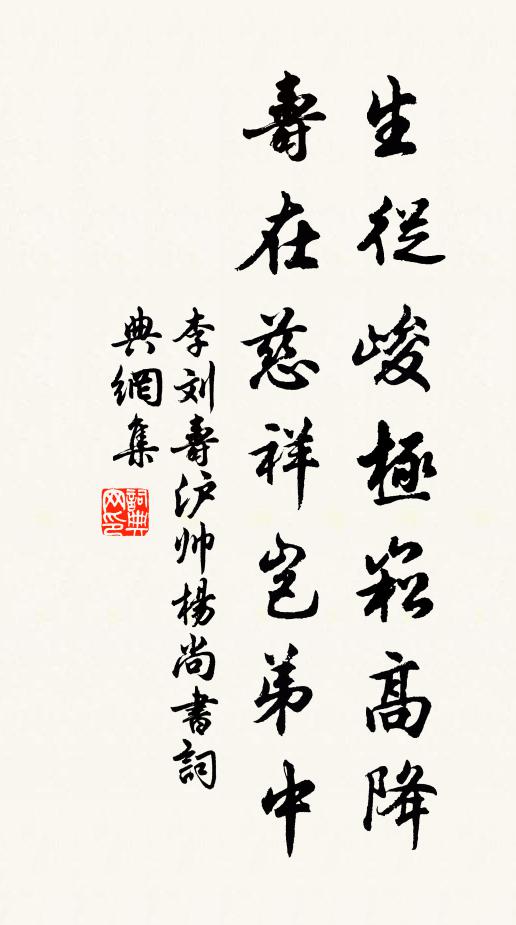 生從峻極崧高降
壽在慈祥岂弟中
李刘壽沪帅楊尚書詞
典網集
詞典网印